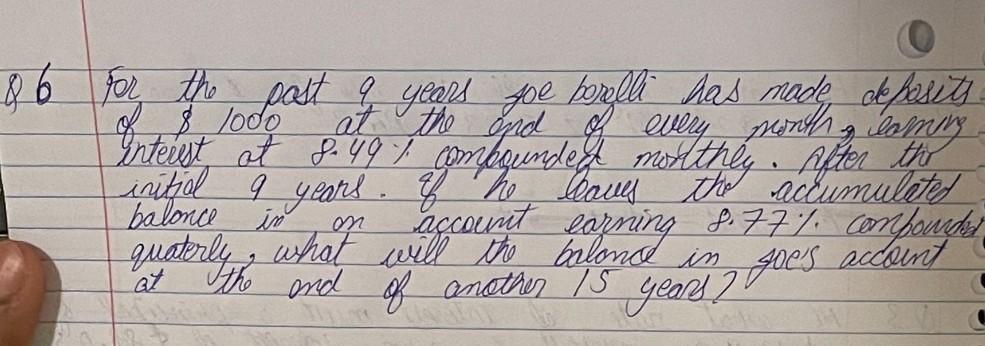 Q6 For the past 9 years joe borelli has made deposits
of $ 1000 at the end of every month, earning
interest at 8.49% compounded monthly. After the
initial 9 years. If he leaves the accumulated
balance in an account earning 8.77% compounded
quaterly, what will the balance in joe's account
at the end of another 15 years?